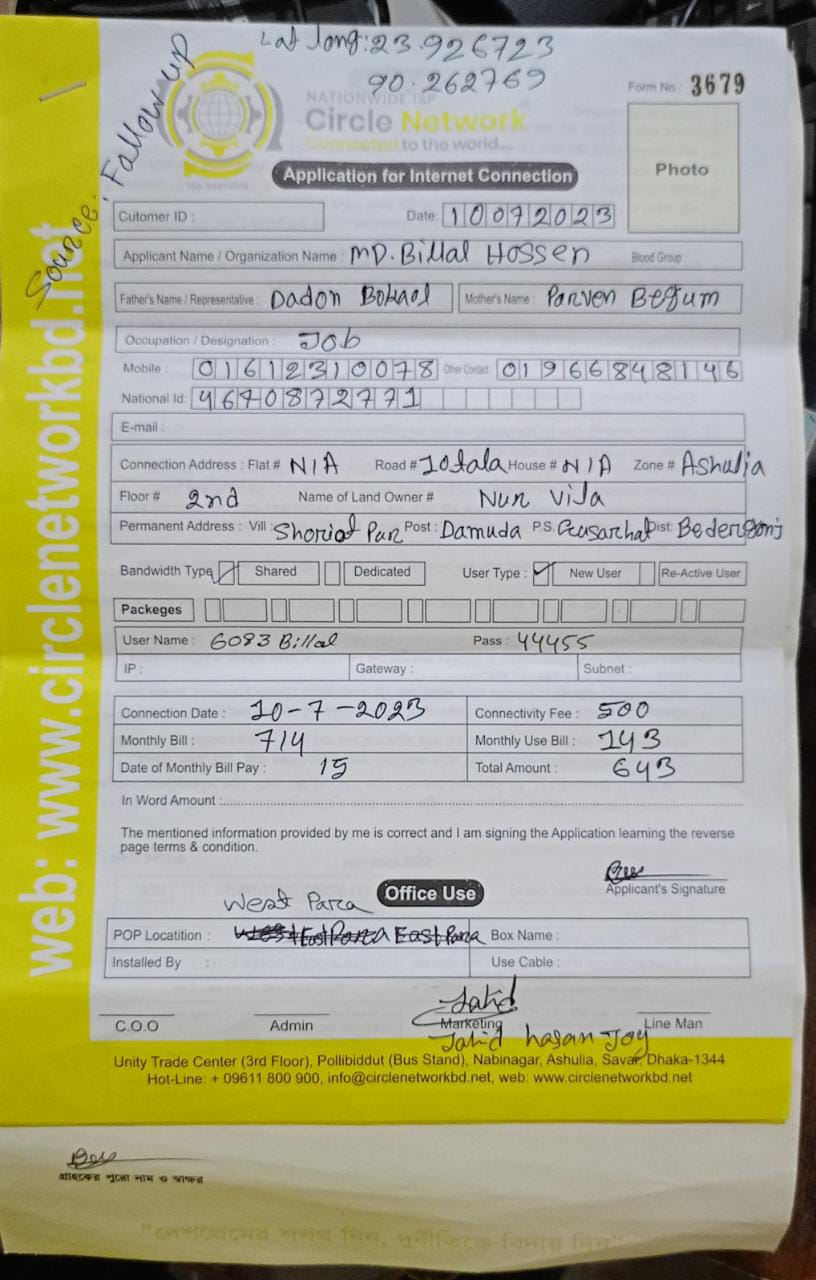 Lat long: 23.926723
90.262769
Source: Follow up
NATIONWIDE ISP
Circle Network
Connected to the world...
Form No : 3679
Photo
Application for Internet Connection
Cutomer ID :
Date: 10072023
Applicant Name / Organization Name : MD. Billal Hossen Blood Group :
Father's Name / Representative : Dadon Mother's Name : Parven Begum
Occupation / Designation : Job
Mobile : 01612310078 Other Contact : 01966848146
National Id: 4640872771
E-mail :
Connection Address : Flat # N/A Road # 10tala House # N/A Zone # Ashulia
Floor # 2nd Name of Land Owner # Nur Villa
Permanent Address : Vill : Shoriat Pur Post : Damuda P.S. Dist:
Bandwidth Type Shared Dedicated User Type : New User Re-Active User
Packeges
User Name : 6083 Billal Pass : 44455
IP : Gateway : Subnet :
Connection Date : 10-7-2023 Connectivity Fee : 500
Monthly Bill : 714 Monthly Use Bill : 143
Date of Monthly Bill Pay : 15 Total Amount : 643
In Word Amount :
The mentioned information provided by me is correct and I am signing the Application learning the reverse
page terms & condition.
Applicant's Signature
Office Use
West Para
POP Locatition : East Para Box Name :
Installed By : Use Cable :
Jahid
C.O.O Admin Marketing Line Man
Jahid hasan Joy
Unity Trade Center (3rd Floor), Pollibiddut (Bus Stand), Nabinagar, Ashulia, Savar, Dhaka-1344
Hot-Line: + 09611 800 900, info@circlenetworkbd.net, web: www.circlenetworkbd.net
web: www.circlenetworkbd.net
গ্রাহকের পুরো নাম ও স্বাক্ষর
"দেশপ্রেমের শপথ নিন, দুর্নীতিকে বিদায় দিন"